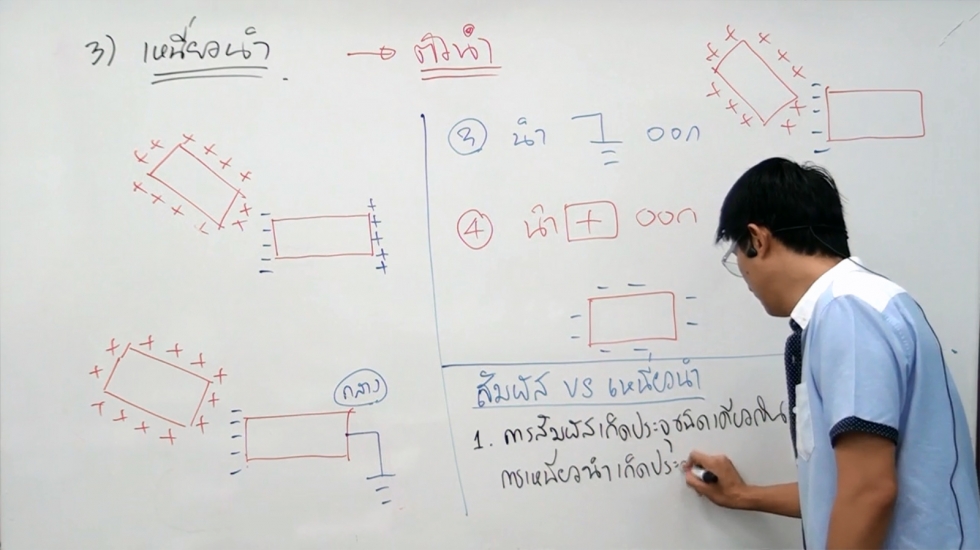 3) เหนี่ยวนำ → ตัวนำ
③ นำ ออก
④ นำ + ออก
กลาง
สัมผัส VS เหนี่ยวนำ
1. การสัมผัสเกิดประจุชนิดเดียวกัน
การเหนี่ยวนำเกิดประจ